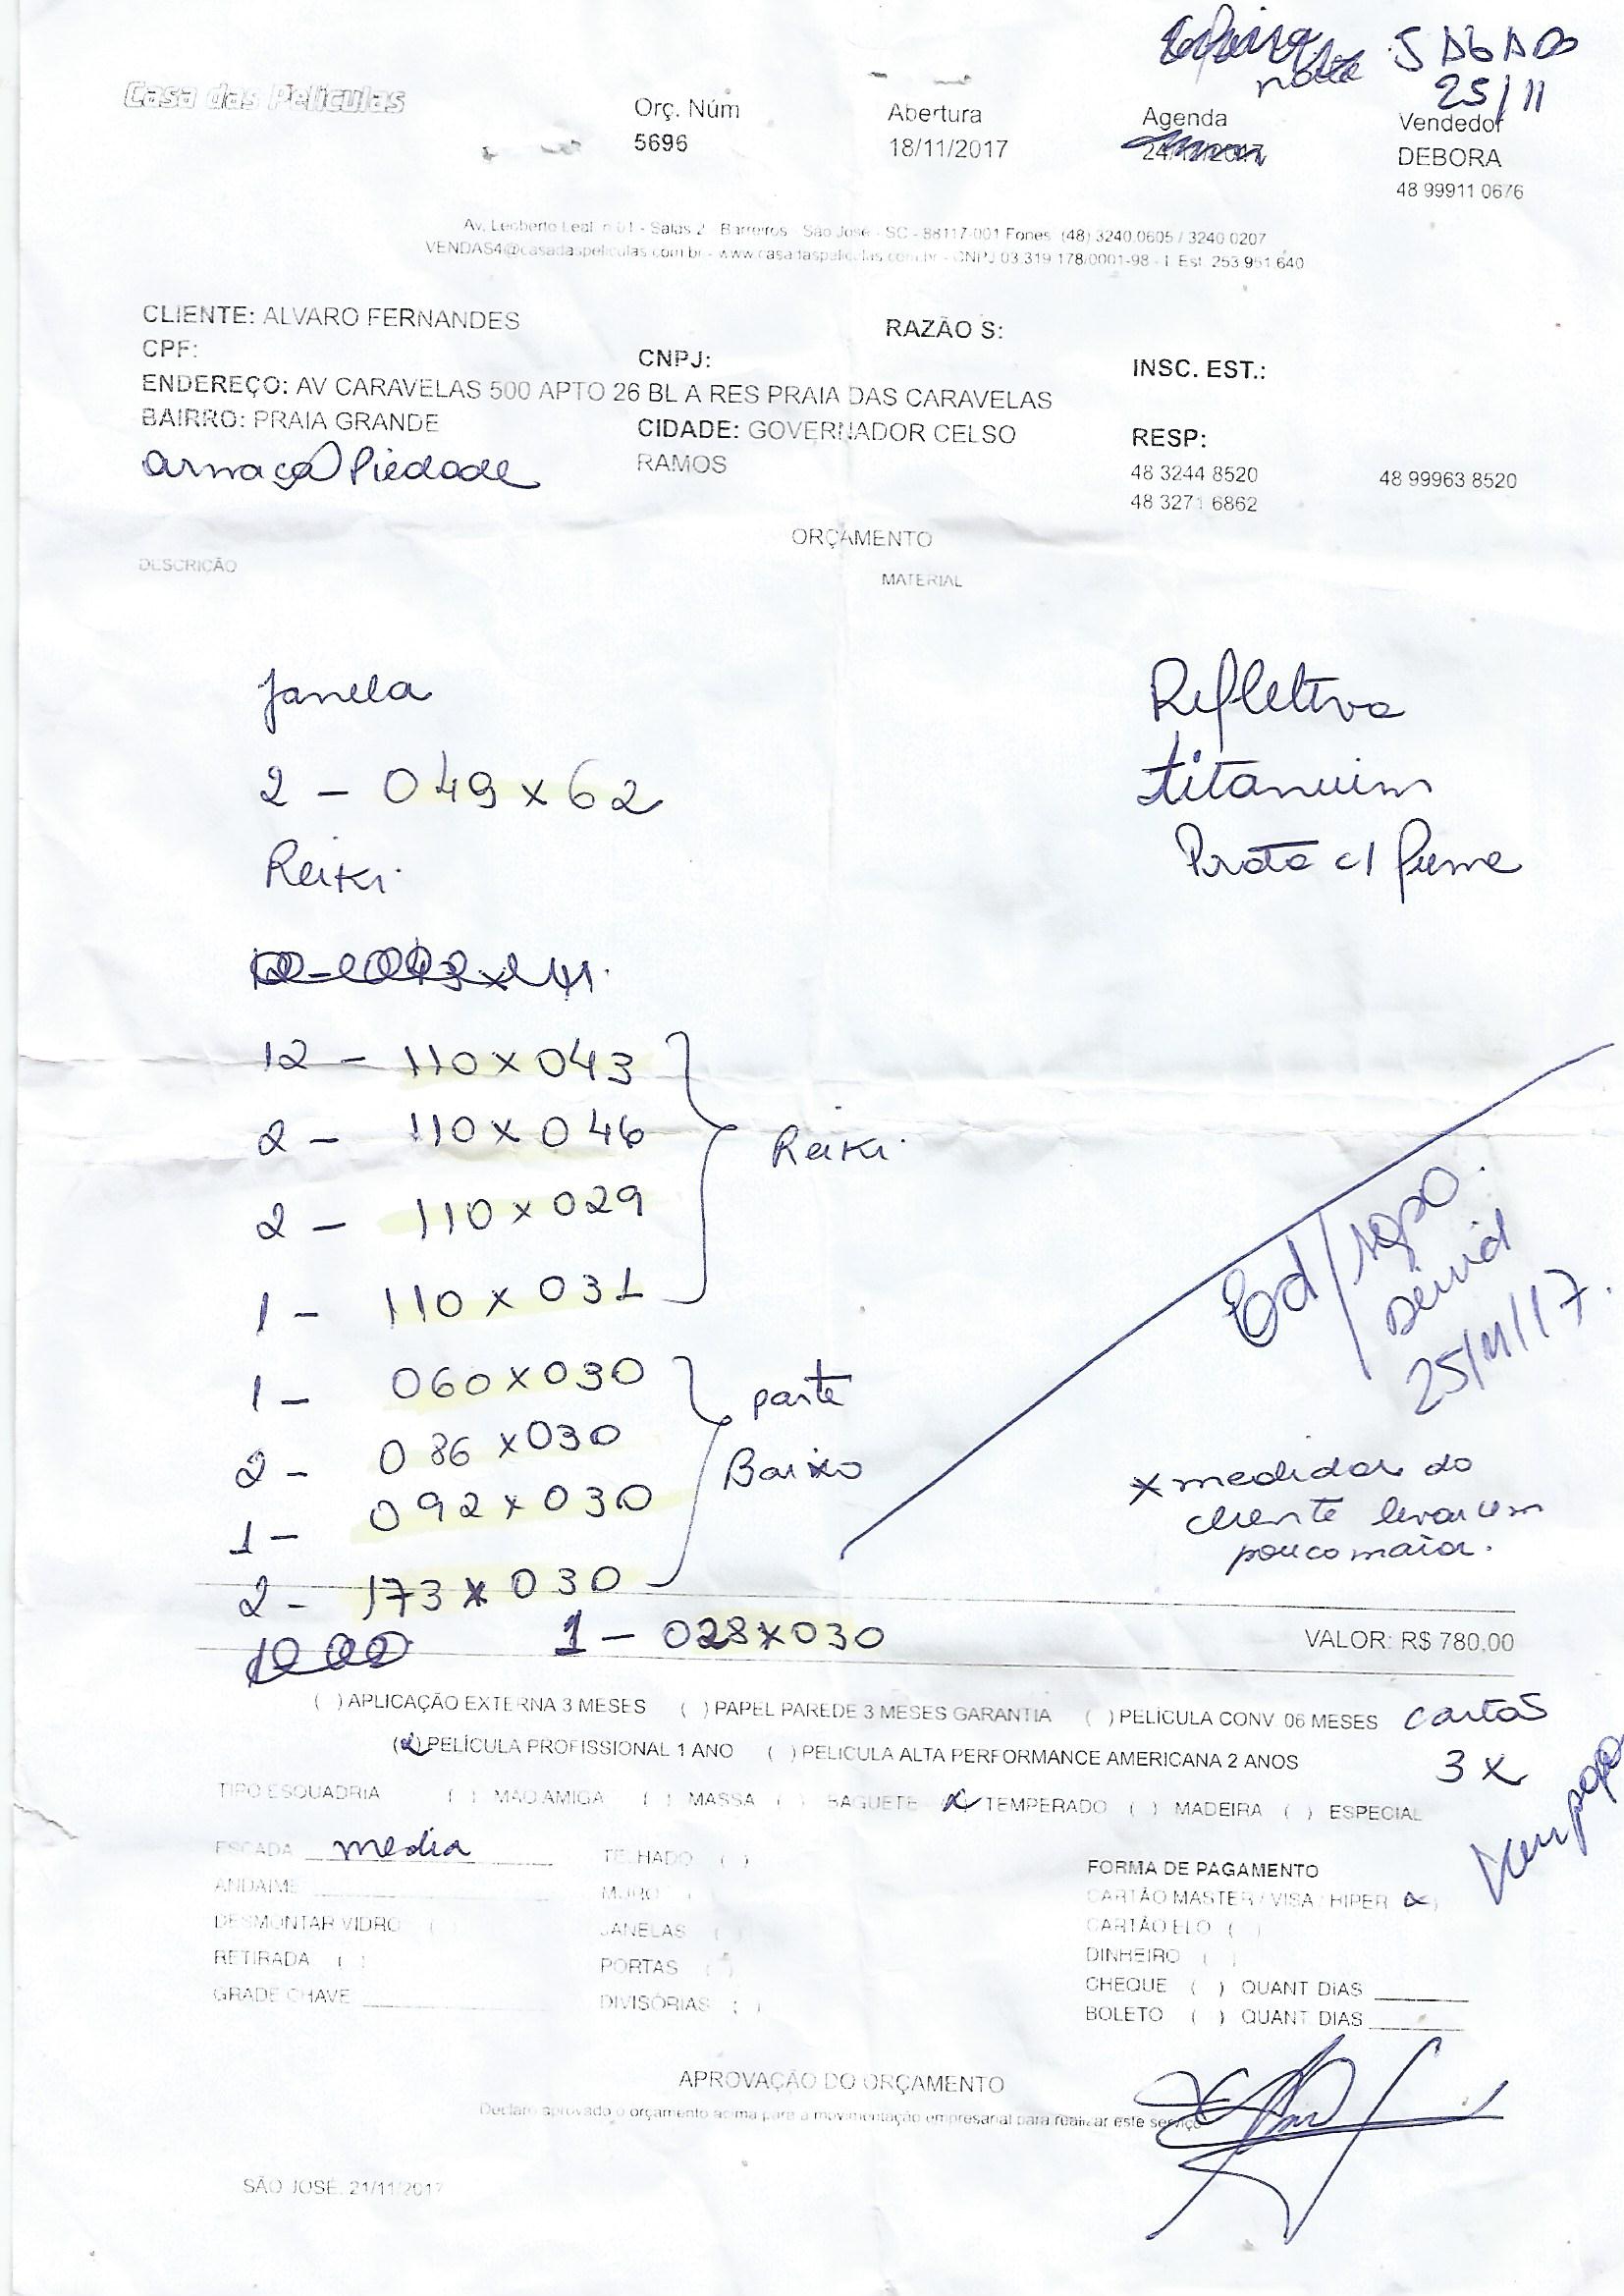 SABADO
noite
25/11
Casa das Películas
Orç. Núm
5696
Abertura
18/11/2017
Agenda
Vendedor
DEBORA
48 99911 0676
Av. Leoberto Leal, n 01 - Salas 2 - Barreiros - São José - SC - 88117-001 Fones: (48) 3240.0605 / 3240.0207
VENDAS4@casadaspeliculas.com.br - www.casadaspeliculas.com.br - CNPJ 03.319.178/0001-98 - I. Est. 253.951.640
CLIENTE: ALVARO FERNANDES
RAZÃO S:
CPF:
CNPJ:
INSC. EST.:
ENDEREÇO: AV CARAVELAS 500 APTO 26 BL A RES PRAIA DAS CARAVELAS
BAIRRO: PRAIA GRANDE
CIDADE: GOVERNADOR CELSO
RAMOS
RESP:
armaçaõ Piedade
48 3244 8520
48 99963 8520
48 3271 6862
ORÇAMENTO
DESCRIÇÃO
MATERIAL
Janela
Refletiva
2 - 049 x 62
titanium
Reiki
Prata c/
12 - 110 x 043
2 - 110 x 046
Reiki
2 - 110 x 029
1 - 110 x 031
1 - 060 x 030
parte
2 - 086 x 030
Baixo
1 - 092 x 030
2 - 173 x 030
1 - 028 x 030
25/11/17.
x medidas do
cliente levar um
pouco maior.
VALOR: R$ 780,00
( ) APLICAÇÃO EXTERNA 3 MESES ( ) PAPEL PAREDE 3 MESES GARANTIA ( ) PELÍCULA CONV. 06 MESES
cartaõ
(x) PELÍCULA PROFISSIONAL 1 ANO ( ) PELICULA ALTA PERFORMANCE AMERICANA 2 ANOS
3 x
TIPO ESQUADRIA ( ) MÃO AMIGA ( ) MASSA ( ) BAGUETE x TEMPERADO ( ) MADEIRA ( ) ESPECIAL
ESCADA media
TELHADO ( )
ANDAIME
MURO ( )
DESMONTAR VIDRO ( )
JANELAS ( )
RETIRADA ( )
PORTAS ( )
GRADE CHAVE
DIVISÓRIAS ( )
FORMA DE PAGAMENTO
CARTÃO MASTER / VISA / HIPER (x)
CARTÃO ELO ( )
DINHEIRO ( )
CHEQUE ( ) QUANT DIAS
BOLETO ( ) QUANT DIAS
APROVAÇÃO DO ORÇAMENTO
Declaro aprovado o orçamento acima para a movimentação empresarial para realizar este serviço
SÃO JOSÉ, 21/11/2017